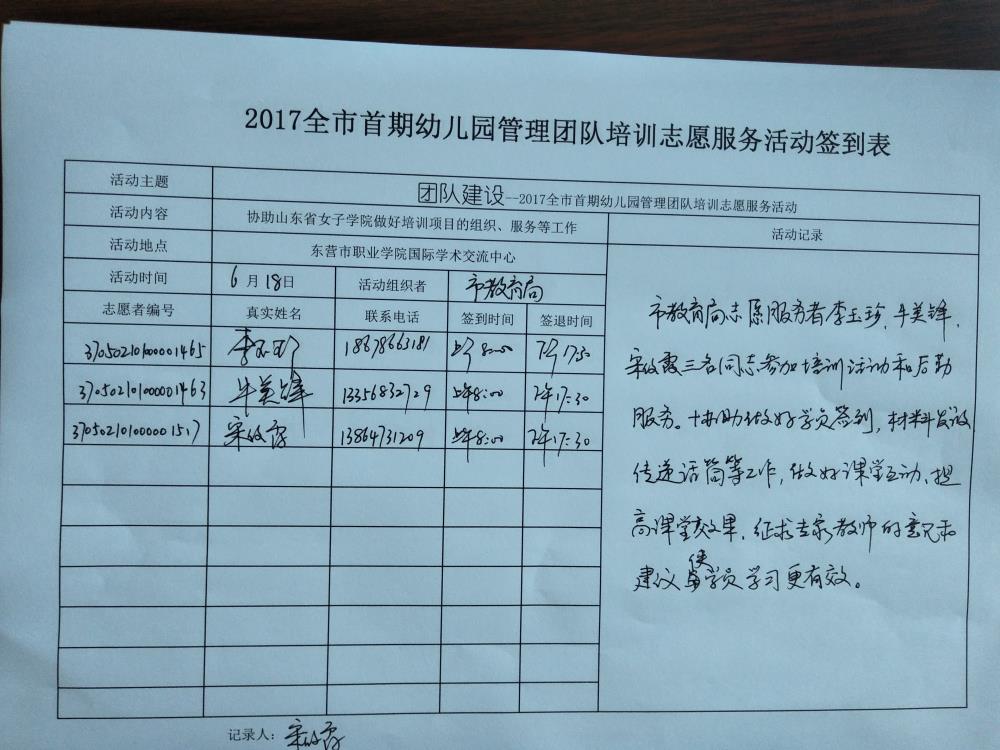 2017全市首期幼儿园管理团队培训志愿服务活动签到表
活动主题 团队建设--2017全市首期幼儿园管理团队培训志愿服务活动
活动内容 协助山东省女子学院做好培训项目的组织、服务等工作 活动记录
活动地点 东营市职业学院国际学术交流中心
活动时间 6月18日 活动组织者 市教育局
志愿者编号 真实姓名 联系电话 签到时间 签退时间
370502101000001465 李玉珍 18678663181 上午8:00 下午17:30
370502101000001463 牛美锋 13356832729 上午8:00 下午17:30
370502101000001517 宋 霞 13864731209 上午8:00 下午17:30
市教育局志愿服务者李玉珍、牛美锋、
宋 霞三名同志参加培训活动和后勤
服务。协助做好学员签到,材料发放
传递话筒等工作,做好课堂互动、提
高课堂效果,征求专家教师的意见和
建议使学员学习更有效。
记录人: 宋 霞